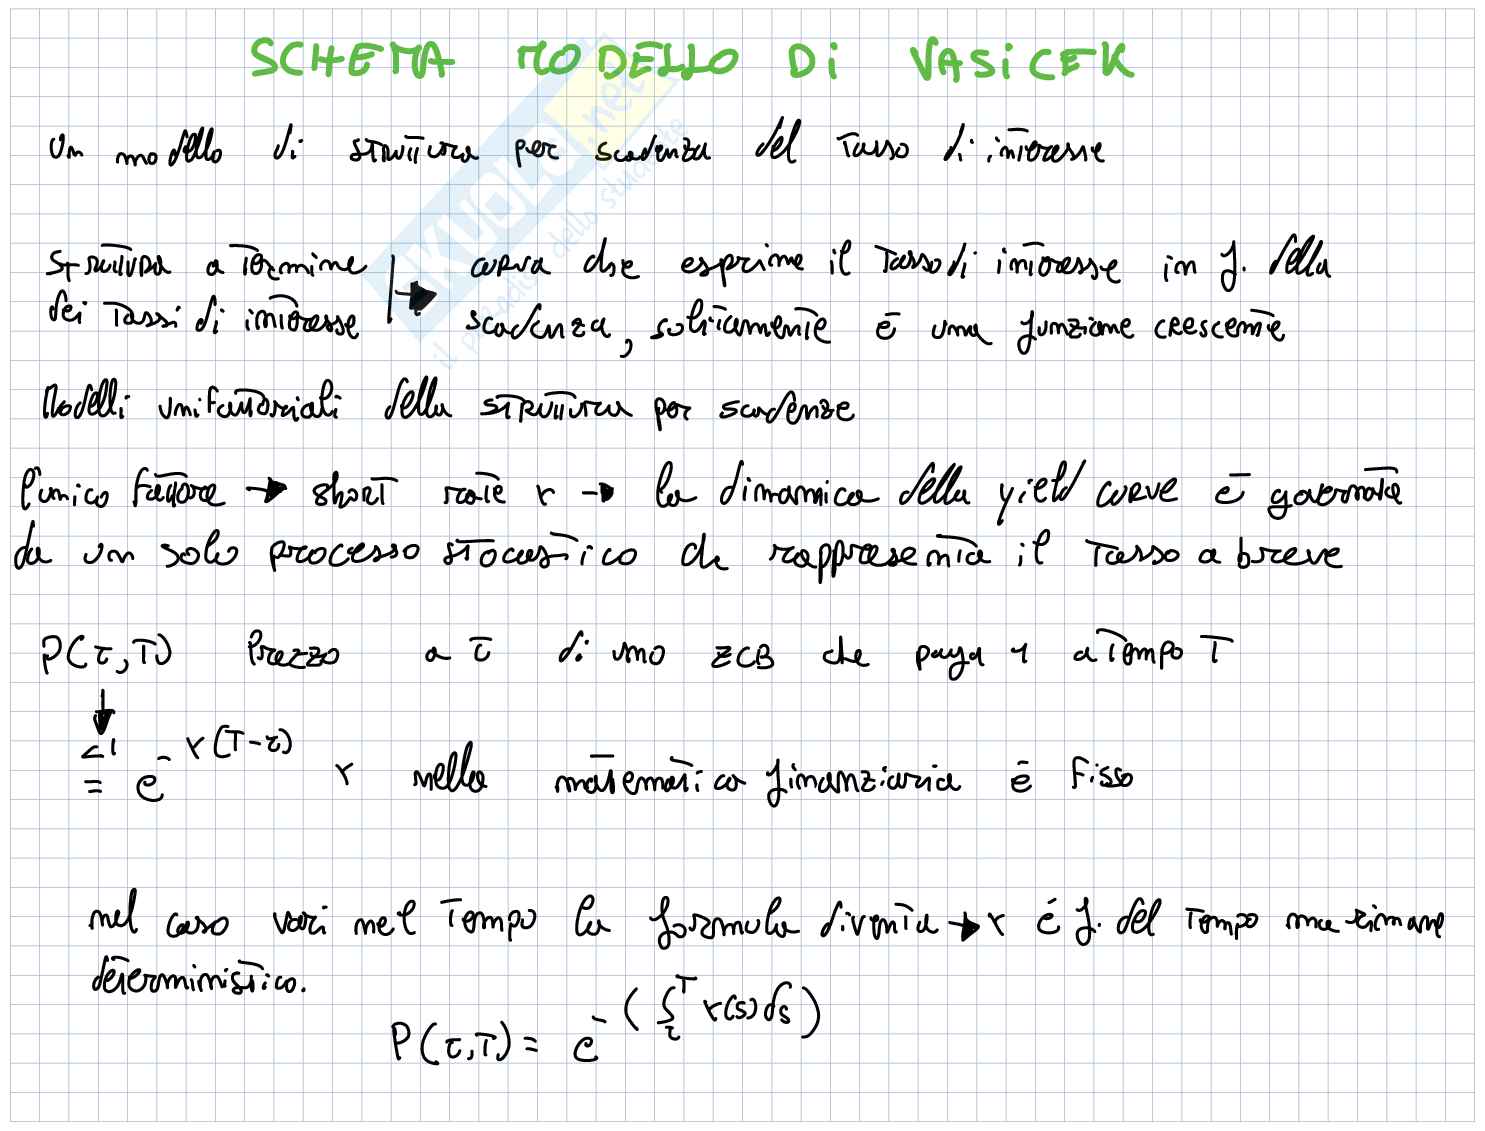 SCHEMA MODELLO DI VASICEK
Un modello di struttura per scadenza del tasso di interesse
Struttura a termine curva che esprime il tasso di interesse in f. della
dei tassi di interesse → scadenza, solitamente è una funzione crescente
Modelli unifattoriali della struttura per scadenze
l'unico fattore → short rate r → la dinamica della yield curve è governata
da un solo processo stocastico che rappresenta il tasso a breve
P(t,T) Prezzo a t di uno ZCB che paga 1 a tempo T
↓
<1
= e^-r(T-t) r nella matematica finanziaria è fisso
nel caso vari nel tempo la formula diventa → r é f. del tempo ma rimane
deterministico.
P(t,T) = e^-(∫_t^T r(s) ds)
SKUOLA.net
il paradiso dello studente